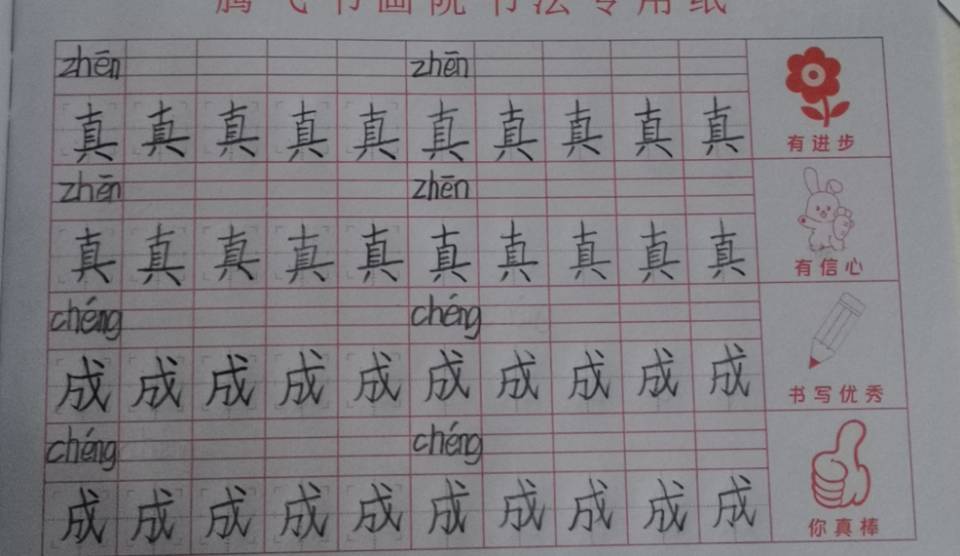 腾飞书画院书法专用纸
zhēn zhēn
真 真 真 真 真 真 真 真 真 真
有进步
zhēn zhēn
真 真 真 真 真 真 真 真 真 真
有信心
chéng chéng
成 成 成 成 成 成 成 成 成 成
书写优秀
chéng chéng
成 成 成 成 成 成 成 成 成 成
你真棒